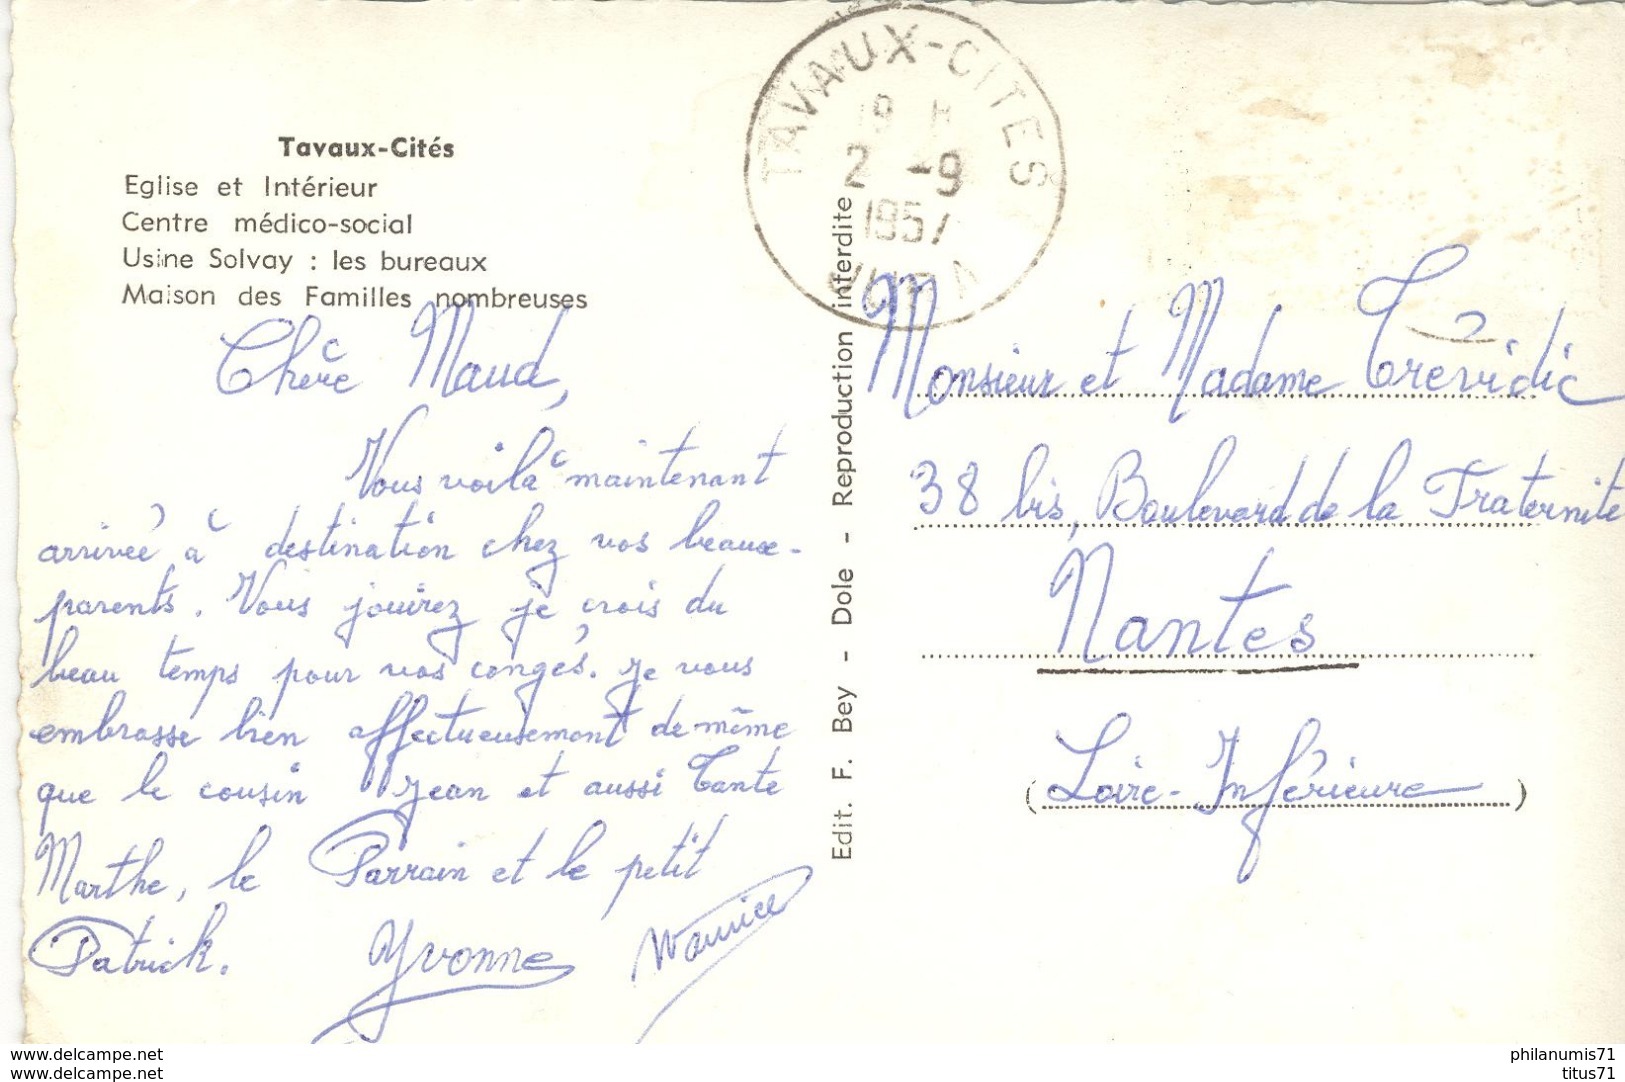 Tavaux-Cités
Eglise et Intérieur
Centre médico-social
Usine Solvay : les bureaux
Maison des Familles nombreuses
Chère Maud,
Vous voilà maintenant
arrivée à destination chez vos beaux-
parents. Vous jouirez je crois du
beau temps pour vos congés. Je vous
embrasse bien affectueusement de même
que le cousin Jean et aussi Tante
Marthe, le Parrain et le petit
Patrick. Yvonne Maurice
Edit. F. Bey - Dole - Reproduction interdite
TAVAUX-CITÉS
19 H
2 -9
1957
JURA
Monsieur et Madame Trévidic
38 bis, Boulevard de la Fraternité
Nantes
(Loire-Inférieure)
www.delcampe.net
www.delcampe.net
philanumis71
titus71